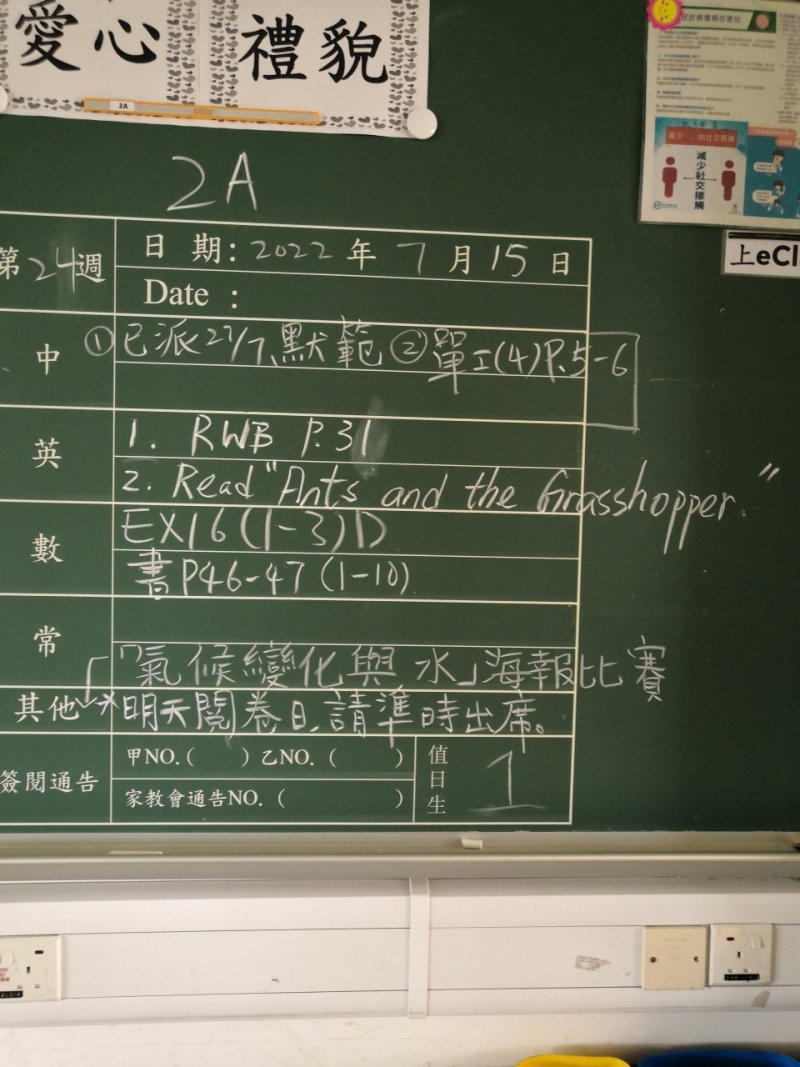 愛心 禮貌
2A
減少社交接觸
上eCl
2A
第24週 日期：2022年7月15日
Date：
中 ①已派27/7、默範 ②單工(4)P.5-6
英 1. RWB P.31
2. Read "Ants and the Grasshopper."
數 EX16(1-3)D
書P46-47 (1-10)
常
「氣候變化與水」海報比賽
其他 *明天閱卷日,請準時出席。
簽閱通告 甲NO.(　　) 乙NO.(　　)
家教會通告NO.(　　)
值日生 1